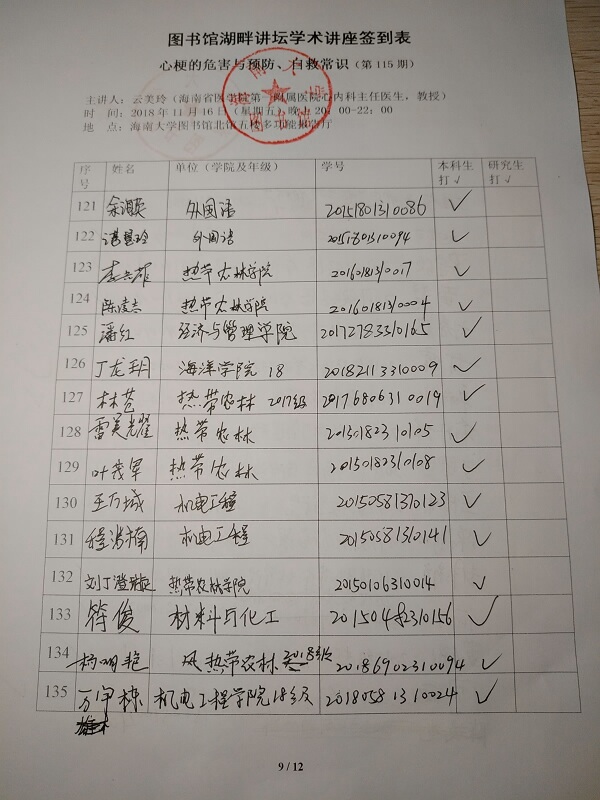 图书馆湖畔讲坛学术讲座签到表
心梗的危害与预防、自救常识（第 115 期）
主讲人：云美玲（海南省医学院第一附属医院心内科主任医生，教授）
时 间：2018年11月16日（星期五）晚上20：00-22：00
地 点：海南大学图书馆北馆五楼多功能报告厅
序号 姓名 单位（学院及年级） 学号 本科生打√ 研究生打√
121 外国语 20151801310086 √
122 外国语 20151801310094 √
123 热带农林学院 20160181310017 √
124 热带农林学院 20160181310004 √
125 潘红 经济与管理学院 20172783310165 √
126 丁龙玥 海洋学院 18 20182113310009 √
127 林苍 热带农林 2017级 20176806310019 √
128 热带农林 20150182310105 √
129 叶茂军 热带农林 20150182310108 √
130 王万城 机电工程 20150581310123 √
131 机电工程 20150581310141 √
132 热带农林学院 20150106310014 √
133 符俊 材料与化工 √
134 杨明艳 热带农林 2018级 20186902310094 √
135 机电工程学院18级 20180581310024 √
9 / 12